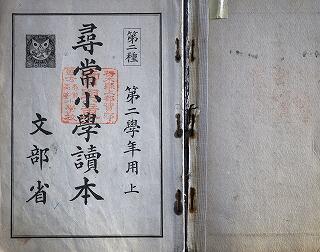 第二種
第二學年用上
尋常小學讀本
文部省